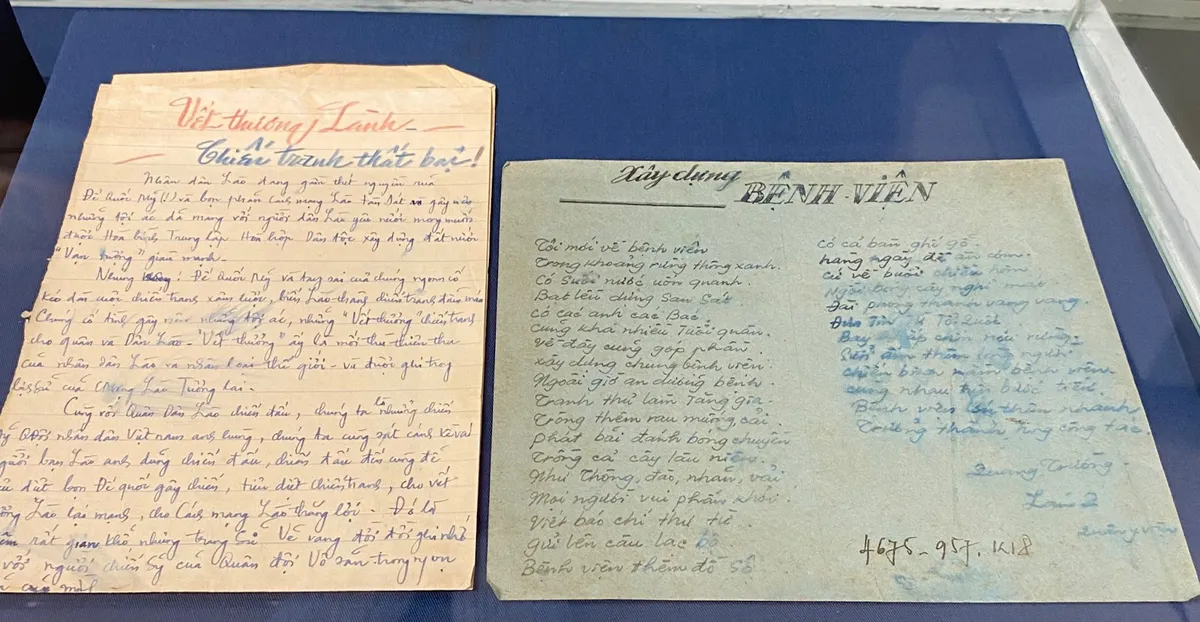 Vết thương Lành
Chiến tranh thất bại!
Nhân dân Lào đang nguyền rủa
Đế Quốc Mỹ (!) và bọn phản cách mạng Lào tàn sát gây nên
những tội ác đã mang với người dân Lào yêu nước mong muốn
được Hòa bình Trung lập Hòa hợp Dân tộc xây dựng đất nước
"Vạn tượng" giàu mạnh.
Nhưng ! Đế Quốc Mỹ và tay sai của chúng ngoan cố
Kéo dài cuộc chiến tranh xâm lược, biến Lào thành chiến trường đẫm máu
Chúng cố tình gây tội ác, những "Vết thương" chiến tranh
cho quân và Dân Lào - "Vết thương" ấy là mối thù thiên thu
của nhân dân Lào và nhân loại thế giới - và được ghi trong
lịch sử của Lào Tương lai -
Cùng với Quân Dân Lào chiến đấu, chúng ta là những chiến
Quân đội nhân dân Việt nam anh hùng, chúng ta cùng sát cánh kề vai
người bạn Lào anh dũng chiến đấu, chiến đấu đến cùng để
dứt bọn Đế quốc gây chiến, tiêu diệt chiến tranh, cho vết
Lào lại mạnh, cho Cách mạng Lào thắng lợi - Đó là
rất gian khổ những trang Sử Vẻ vang đời đời ghi nhớ
với người chiến Sỹ của Quân đội Vô sản
Xây dựng
BỆNH VIỆN
Tôi mới về bệnh viện
Trong khoảng rừng thông xanh.
Có Suối nước uốn quanh.
Bạt lều dựng San Sát
Có các anh các Bác.
Cũng khá nhiều Tuổi quân.
Về đây cùng góp phần.
xây dựng chung bệnh viện.
Ngoài giờ an dưỡng bệnh
Tranh thủ làm Tăng gia.
Trồng thêm rau muống, cải
phát bãi đánh bóng chuyền
Trồng cả cây lâu niên.
Như Thông, đào, nhãn, vải
Mọi người vui phấn khởi.
Viết báo chí thư từ
Gửi lên câu lạc bộ
Bệnh viện thêm đồ Sộ
Có cả bàn ghế gỗ.
hàng ngày để ăn cơm.
cứ về buổi chiều hôm
Ngồi nghỉ mát
Đài phóng thanh vang vang.
Đưa Tin Tổ Quốc
núi rừng
người
chiến bệnh viện
cùng nhau bước tiến
Bệnh viện nhanh
Trưởng thành Từng công tác.
Quang Trường
4675-957. K18